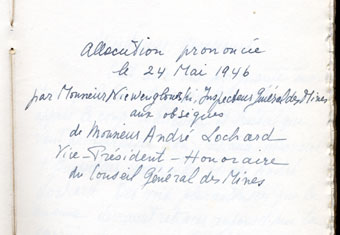 Allocution prononcée
le 24 Mai 1946
par Monsieur Niewenglowski, Inspecteur Général des Mines
aux obsèques
de Monsieur André Lochard
Vice-Président-Honoraire
du Conseil Général des Mines